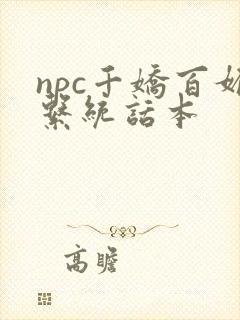 npc千嬌百媚
繫統話本
高瞻